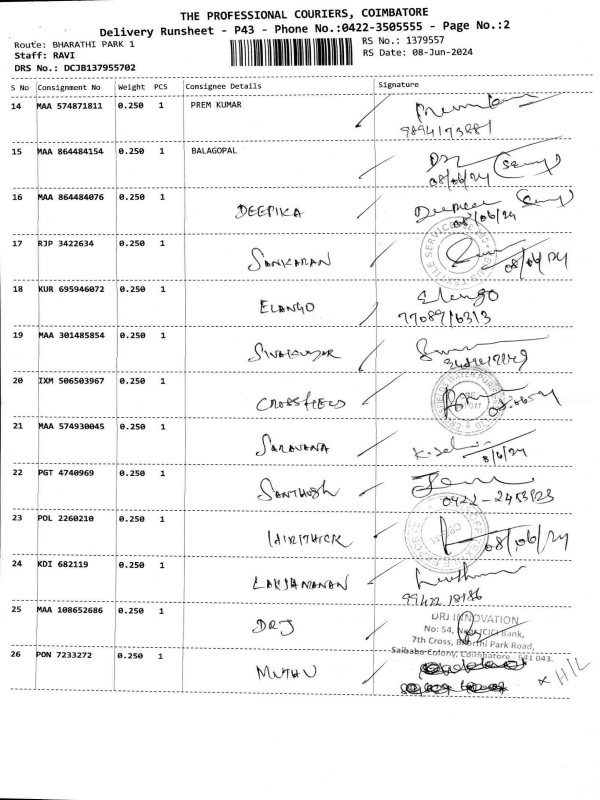 THE PROFESSIONAL COURIERS, COIMBATORE
Delivery Runsheet - P43 - Phone No.:0422-3505555 - Page No.:2
Route: BHARATHI PARK 1
RS No.: 1379557
Staff: RAVI
RS Date: 08-Jun-2024
DRS No.: DCJB137955702
S No Consignment No Weight PCS Consignee Details Signature
14 MAA 574871811 0.250 1 PREM KUMAR
15 MAA 864484154 0.250 1 BALAGOPAL
08/06/24
16 MAA 864484076 0.250 1 DEEPIKA Deepikaa
08/06/24
17 RJP 3422634 0.250 1 SANKARAN
08/06/24
18 KUR 695946072 0.250 1 ELANGO Elango
7708976313
19 MAA 301485854 0.250 1 SIVAKUMAR
20 IXM 506503967 0.250 1 CROSSFIELD
21 MAA 574930045 0.250 1 SARAVANA
8/6/24
22 PGT 4740969 0.250 1 SANTHOSH
0422-2453523
23 POL 2260210 0.250 1
08/06/24
24 KDI 682119 0.250 1 LAKSHMANAN
99422 18186
25 MAA 108652686 0.250 1 DRJ
DRJ INNOVATION
No: 54, Near ICICI Bank,
7th Cross, Bharthi Park Road,
Saibaba Colony, Coimbatore - 641 043.
26 PON 7233272 0.250 1 MUTHU
x H/L